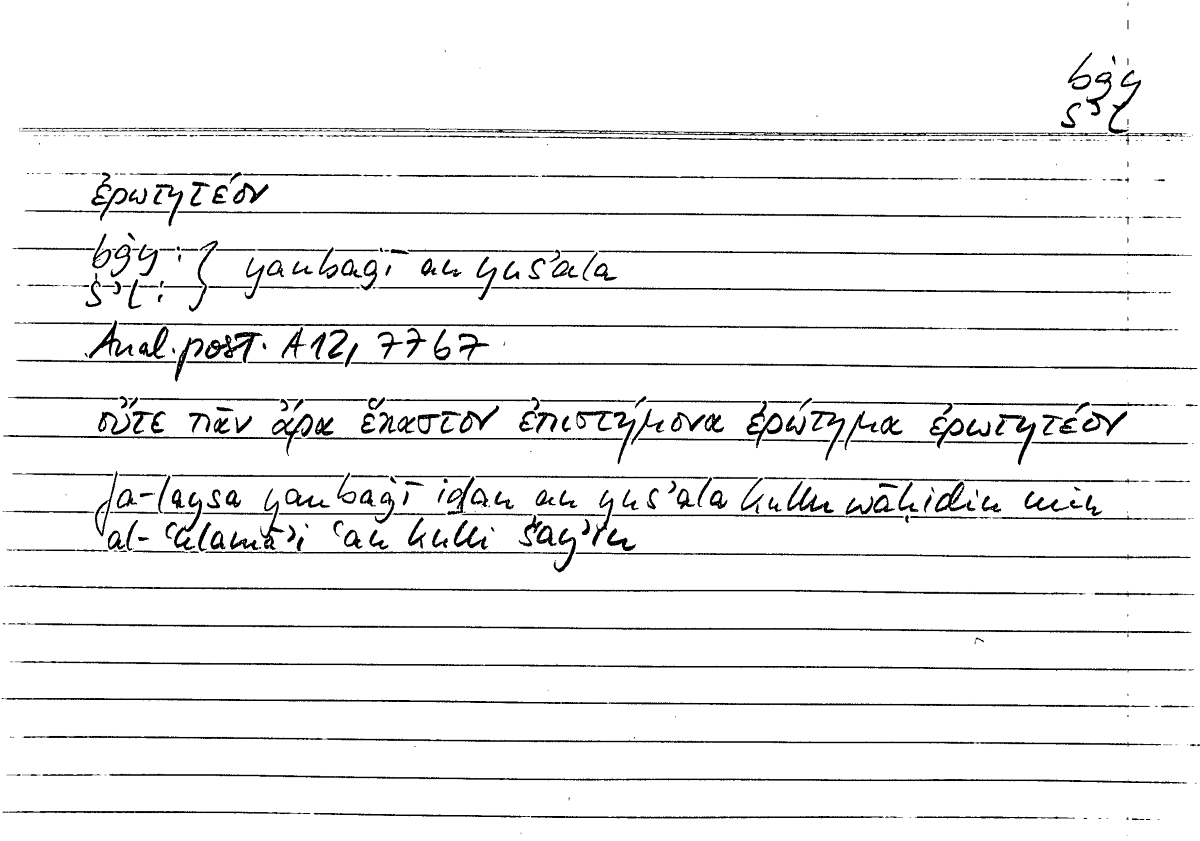 bġy
s’l
ἐρωτητέον
bġy : } yanbaġī an yus’ala
s’l :
Anal. post. A12, 77b7
οὔτε πᾶν ἄρα ἕκαστον ἐπιστήμονα ἐρώτημα ἐρωτητέον
fa-laysa yanbaġī iḏan an yus’ala kullu wāḥidin min
al-‘ulamā’i ‘an kulli šay’in